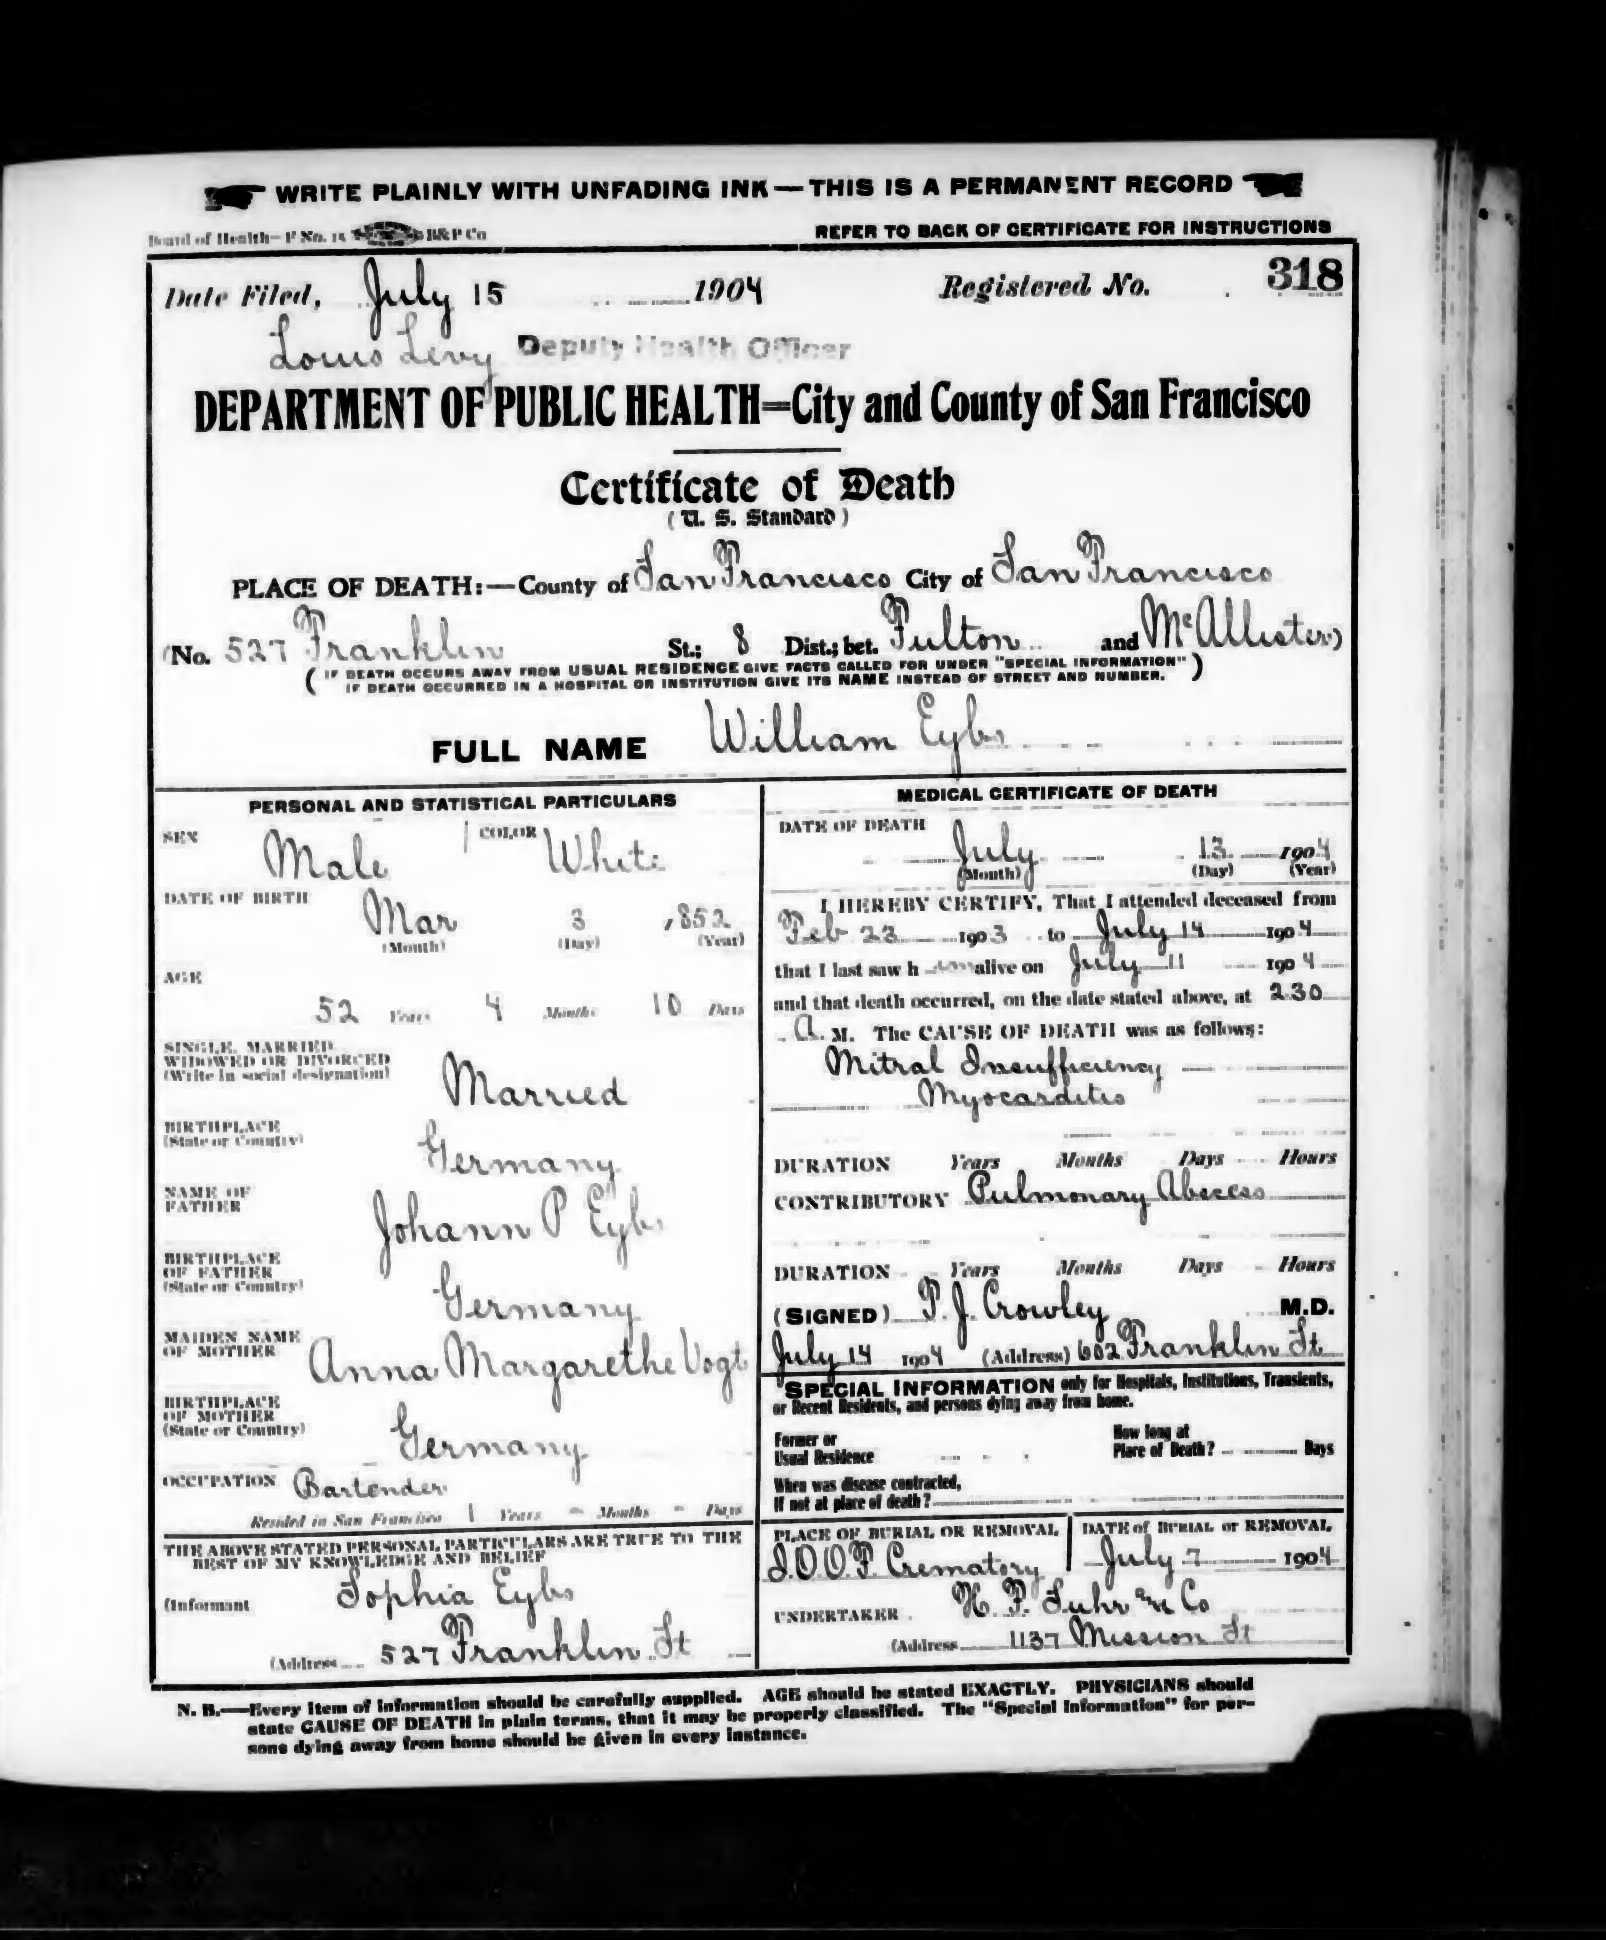 WRITE PLAINLY WITH UNFADING INK—THIS IS A PERMANENT RECORD
Board of Health—F No. 15 B&P Co
REFER TO BACK OF CERTIFICATE FOR INSTRUCTIONS
Date Filed, July 15 1904 Registered No. 318
Louis Levy Deputy Health Officer
DEPARTMENT OF PUBLIC HEALTH=City and County of San Francisco
Certificate of Death
(U. S. Standard)
PLACE OF DEATH:—County of San Francisco City of San Francisco
(No. 527 Franklin St.; 8 Dist.; bet. Fulton and McAllister)
(IF DEATH OCCURS AWAY FROM USUAL RESIDENCE GIVE FACTS CALLED FOR UNDER "SPECIAL INFORMATION"
IF DEATH OCCURRED IN A HOSPITAL OR INSTITUTION GIVE ITS NAME INSTEAD OF STREET AND NUMBER.)
FULL NAME William Eybs
PERSONAL AND STATISTICAL PARTICULARS
SEX Male COLOR White
DATE OF BIRTH
Mar 3 1852
(Month) (Day) (Year)
AGE
52 Years 4 Months 10 Days
SINGLE, MARRIED,
WIDOWED OR DIVORCED
(Write in social designation)
Married
BIRTHPLACE
(State or Country)
Germany
NAME OF
FATHER
Johann P Eybs
BIRTHPLACE
OF FATHER
(State or Country)
Germany
MAIDEN NAME
OF MOTHER
Anna Margarethe Vogt
BIRTHPLACE
OF MOTHER
(State or Country)
Germany
OCCUPATION Bartender
Resided in San Francisco 1 Years - Months - Days
THE ABOVE STATED PERSONAL PARTICULARS ARE TRUE TO THE
BEST OF MY KNOWLEDGE AND BELIEF
(Informant Sophia Eybs
(Address 527 Franklin St
MEDICAL CERTIFICATE OF DEATH
DATE OF DEATH
July 13 1904
(Month) (Day) (Year)
I HEREBY CERTIFY, That I attended deceased from
Feb 23 1903 to July 14 1904
that I last saw h im alive on July 11 1904
and that death occurred, on the date stated above, at 2.30
A. M. The CAUSE OF DEATH was as follows:
Mitral Insufficiency
Myocarditis
DURATION Years Months Days Hours
CONTRIBUTORY Pulmonary Abscess
DURATION Years Months Days Hours
(SIGNED) P. J. Crowley M.D.
July 14 1904 (Address) 602 Franklin St
SPECIAL INFORMATION only for Hospitals, Institutions, Transients,
or Recent Residents, and persons dying away from home.
Former or
Usual Residence
How long at
Place of Death? Days
When was disease contracted,
If not at place of death?
PLACE OF BURIAL OR REMOVAL
I.O.O.F. Crematory
DATE of BURIAL or REMOVAL
July 7 1904
UNDERTAKER H. F. Suhr &amp; Co
(Address 1137 Mission St
N. B.—Every item of information should be carefully supplied. AGE should be stated EXACTLY. PHYSICIANS should
state CAUSE OF DEATH in plain terms, that it may be properly classified. The "Special Information" for per-
sons dying away from home should be given in every instance.